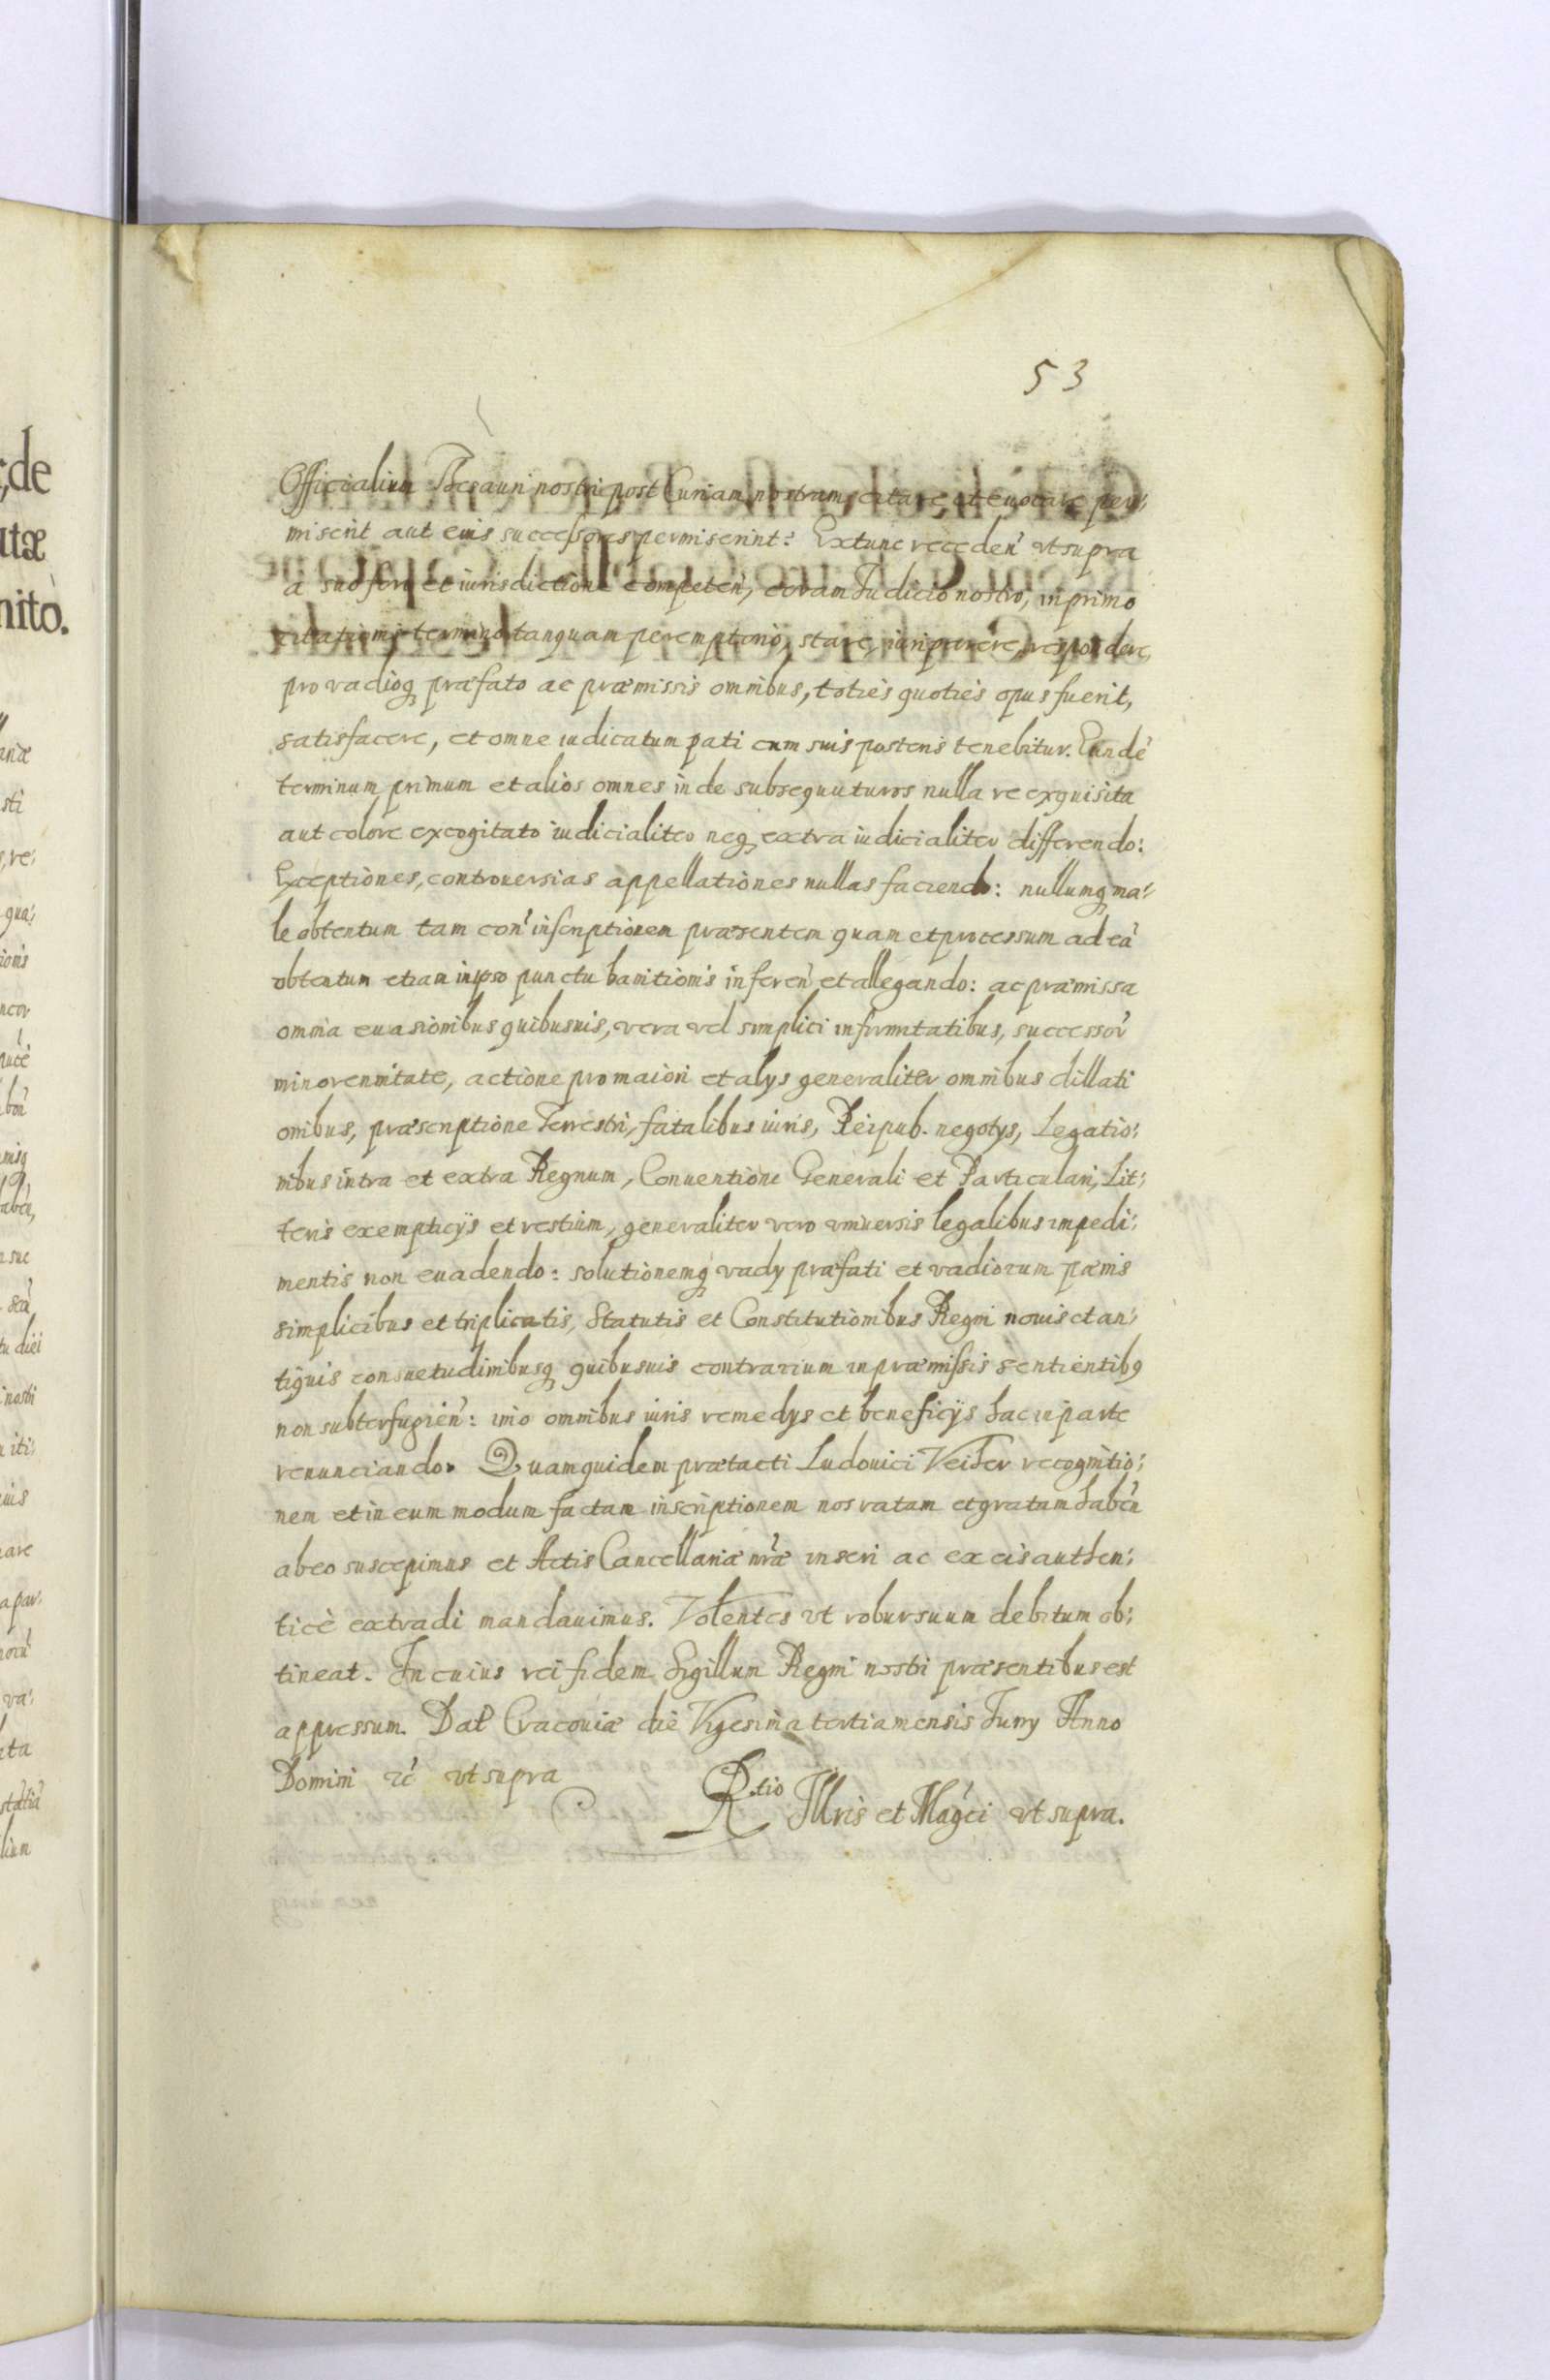 53
Officialium Thesauri nostri post Curiam nostram citare et euocare per:
miserit aut eius successores permiserint: Extunc receden̄ vt supra
a suo foro et iurisdictione competen̄, coram Iudicio nostro, in primo
citationis termino tanquam peremptorio, stare, iuri parere, respondere,
pro vadioq̨ præfato ac præmissis omnibus, toties quoties opus fuerit,
satisfacere, et omne iudicatum pati cum suis posteris tenebitur. Eundē
terminum primum et alios omnes inde subsequuturos nulla re exquisita
aut colore excogitato iudicialiter neq̨ extra iudicialiter differendo:
Exceptiones, controuersias appellationes nullas faciendo: nullumq̨ ma:
le obtentum tam con̄ inscriptionem præsentem quam et processum ad eā
obtentum etiam in ipso punctu banitionis inferen̄ et allegando: ac præmissa
omnia euasionibus quibusuis, vera vel simplici infirmitatibus, successor̄
minorennitate, actione pro maiori et alys generaliter omnibus dillati
onibus, præscriptione Terrestri, fatalibus iuris, Reipub. negotys, Legatio:
nibus intra et extra Regnum, Conuentione Generali et Particulari, Lit:
teris exempticÿs et restium, generaliter vero vniuersis legalibus impedi:
mentis non euadendo: solutionemq̨ vady præfati et vadiorum pœnis
simplicibus et triplicatis, Statutis et Constitutionibus Regni nouis et an:
tiquis consuetudinibusq̨ quibusuis contrarium in præmissis sentientibꝯ
non subterfugien̄: imo omnibus iuris remedys et beneficÿs hac in parte
renunciando. Quamquidem prætacti Ludouici Veiher recognitio:
nem et in eum modum factam inscriptionem nos ratam et gratam haben̄
ab eo suscepimus et Actis Cancellariæ nr̄æ inseri ac ex eis authen:
ticè extradi mandauimus. Volentes vt robur suum debitum ob:
tineat. In cuius rei fidem Sigillum Regni nostri præsentibus est
appressum. Dat Cracouiæ die Vigesima tertia mensis Iuny Anno
Domini ꝛc̄ vt supra
R.tio Illris et Magci vt supra.